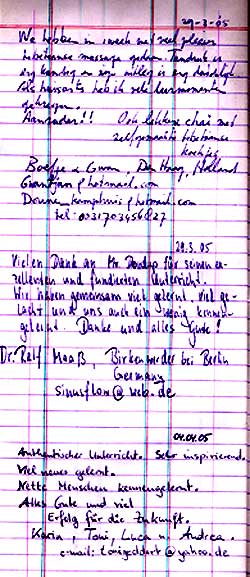 29-3-05
We hebben in 1 week met veel plezier
tibetaanse massage gedaan.
erg kundig en zijn uitleg is erg duidelijk
Als massants heb ik vele leermomenten
gekregen.
Aanrader!! Ook lekkere chai met
zelfgemaakte tibetaanse
koekjes
Boefje & Gwan, Den Haag, Holland
hotmail.com
hotmail.com
tel: 0031703456827
29.3.05
Vielen Dank an Mr. Dondup für seinen ex-
zellenten und fundierten Unterricht.
Wir haben gemeinsam viel gelernt, viel ge-
lacht und uns auch ein wenig kennen-
gelernt. Danke und alles Gute!
Dr. Ralf Maaß, Birkenwerder bei Berlin
Germany
sinusflow@web.de
04.04.05
Authentischer Unterricht. Sehr inspirierend.
Viel neues gelernt.
Nette Menschen kennengelernt.
Alles Gute und viel
Erfolg für die Zukunft.
Karin, Toni, Luca u. Andrea.
e-mail: tonigeddart@yahoo.de